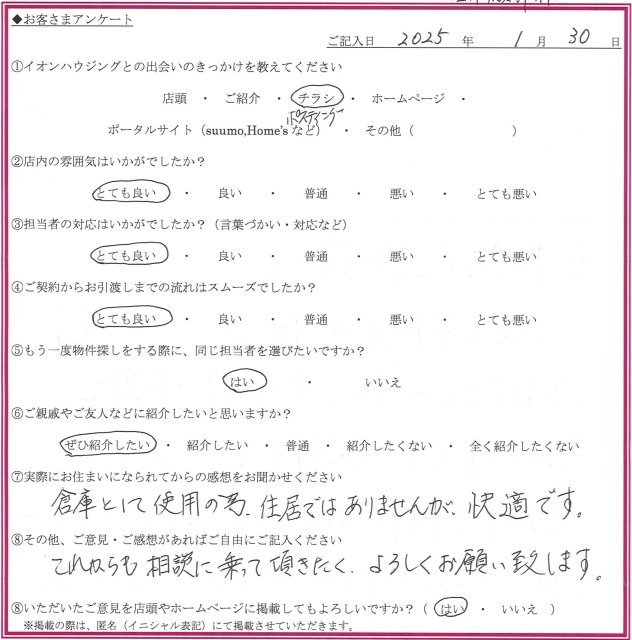 ◆お客さまアンケート
ご記入日 2025 年 1 月 30 日
①イオンハウジングとの出会いのきっかけを教えてください
店頭 ・ ご紹介 ・ チラシ ・ ホームページ ・
ポスティング
ポータルサイト(suumo,Home'sなど) ・ その他( )
②店内の雰囲気はいかがでしたか?
とても良い ・ 良い ・ 普通 ・ 悪い ・ とても悪い
③担当者の対応はいかがでしたか?(言葉づかい・対応など)
とても良い ・ 良い ・ 普通 ・ 悪い ・ とても悪い
④ご契約からお引渡しまでの流れはスムーズでしたか?
とても良い ・ 良い ・ 普通 ・ 悪い ・ とても悪い
⑤もう一度物件探しをする際に、同じ担当者を選びたいですか?
はい ・ いいえ
⑥ご親戚やご友人などに紹介したいと思いますか?
ぜひ紹介したい ・ 紹介したい ・ 普通 ・ 紹介したくない ・ 全く紹介したくない
⑦実際にお住まいになられてからの感想をお聞かせください
倉庫として使用の為、住居ではありませんが、快適です。
⑧その他、ご意見・ご感想があればご自由にご記入ください
これからも相談に乗って頂きたく、よろしくお願い致します。
⑧いただいたご意見を店頭やホームページに掲載してもよろしいですか?( はい ・ いいえ )
※掲載の際は、匿名(イニシャル表記)にて掲載させていただきます。